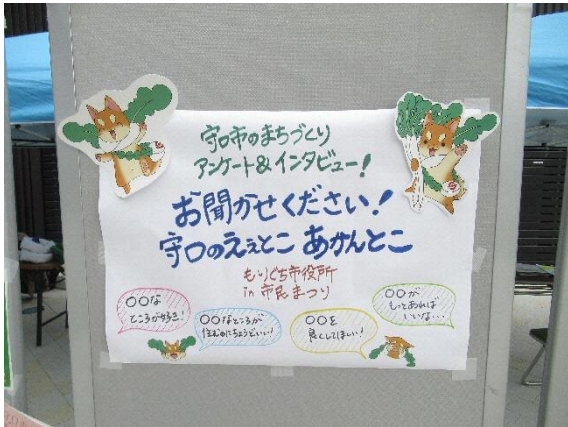 守口市のまちづくり
アンケート&インタビュー!
お聞かせください!
守口のええとこ あかんとこ
もりぐち市役所
in 市民まつり
〇〇な
ところが好き!
〇〇なところが
住むのにちょうどいい!
〇〇を
良くしてほしい!
〇〇が
もっとあれば
いいな…